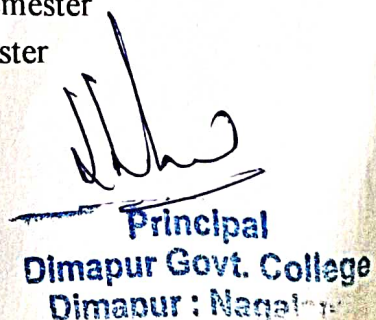 mester
ster
Principal
Dimapur Govt. College
Dimapur :